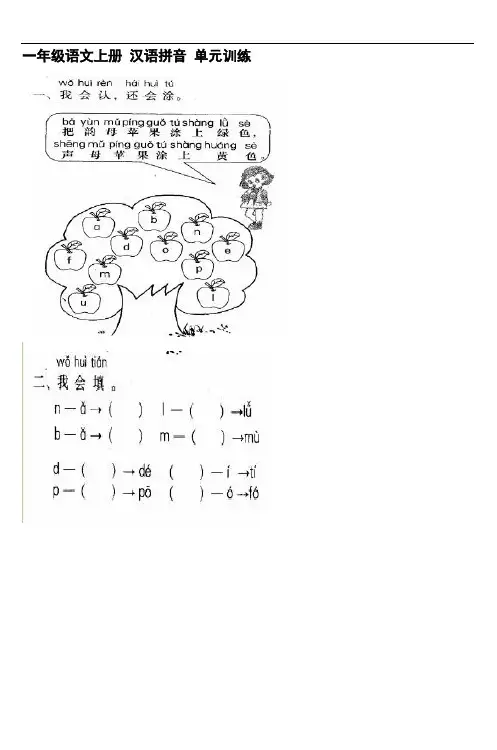 一年级语文上册 汉语拼音 单元训练
wǒ huì rèn hái huì tú
一、我会认，还会涂。
bǎ yùn mǔ píng guǒ tú shàng lǜ sè
把韵母苹果涂上绿色，
shēng mǔ píng guǒ tú shàng huáng sè
声母苹果涂上黄色。
a b n
f d o e
m p
u l
wǒ huì tián
二、我会填。
n — ǎ → ( ) l — ( ) → lǚ
b — ǎ → ( ) m — ( ) → mù
d — ( ) → dé ( ) — í → tí
p — ( ) → pō ( ) — ó → fó